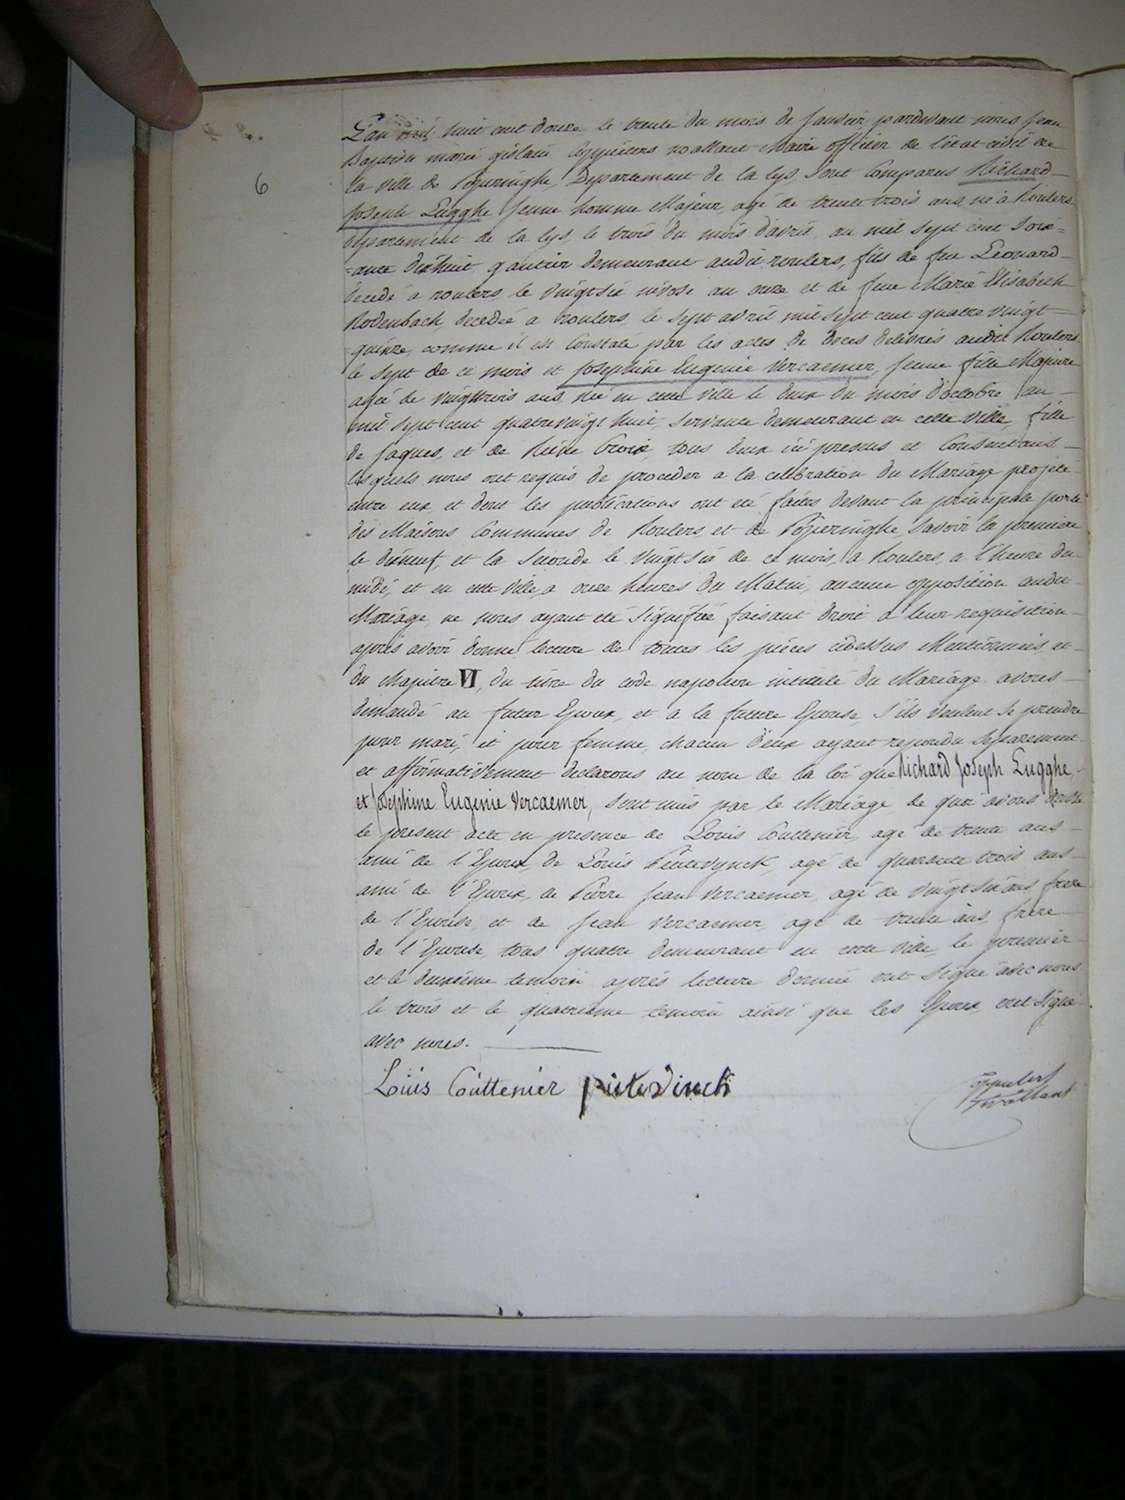 6
L'an mil huit cent douze le trente du mois de Janvier, pardevant nous Jean
Baptiste marie gislain noallaut Maire officier de l'état civil de
la ville de Popringhe, Departement de la lys, Sont Comparus Richard
Joseph Lugghe Jeune homme Majeur, agé de trente trois ans, né à Roulers
departement de la lys, le trois du mois d'avril, an mil Sept cent Soix=
=ante dixhuit, demeurant audit roulers, fils de feu Leonard
decedé a roulers, le Vingtsix nivose an onze, et de feue Marie Elisabeth
Rodenbach, decedée a roulers, le Sept avril mil sept cent quatre vingt
quinze, comme il est Constaté par les actes de deces delivrés audit Roulers
le Sept de ce mois et Josephine Eugenie Vercaemer, Jeune fille Majeure
agée de Vingttrois ans, née en cette ville le deux du mois d'octobre, an
mil Sept cent quatrevingt huit, Servante demeurant en cette Ville, fille
de Jaques, et de Croix, tous deux ici presens et Consentans
lesquels nous ont requis de proceder a la celebration du Mariage projeté
entre eux, et dont les publications ont été faites devant la principale porte
des Maisons Communes de Roulers et de Popringhe, Savoir la premiere
le dixneuf, et la Seconde le Vingtsix de ce mois, a Roulers, a l'heure de
midi, et en cette Ville, a onze heures du Matin, aucune opposition audit
Mariage, ne nous ayant été Signifiée faisant droit a leur requisition
après avoir donné lecture de toutes les pièces cidessus Mentionnées, et
du Chapitre VI, du titre du code napoleon intitulé du Mariage avons
demandé au futur Epoux, et a la future Epouse, S'ils Veulent Se prendre
pour mari, et pour femme, chacun d'eux ayant repondu Separement
et affirmativement declarons au nom de la loi que Richard Joseph Lugghe,
et Josephine Eugenie Vercaemer, Sont unis par le Mariage, de quoi avons dressé
le present acte en presence de Louis Couttenier, agé de trente ans
ami de l'Epoux, de Louis Pietevynck, agé de quarante trois ans
ami de l'Epoux, de Pierre Jean Vercaemer, agé de Vingtsix ans frere
de l'Epouse, et de Jean Vercaemer, agé de trente ans, frere
de l'Epouse, tous quatre demeurant en cette Ville, le premier
et le deuxième temoin après lecture donnée ont Signé avec nous
le trois et le quatrieme temoin ainsi que les Epoux ont Signé
avec nous.
Louis Couttenier pietevinck